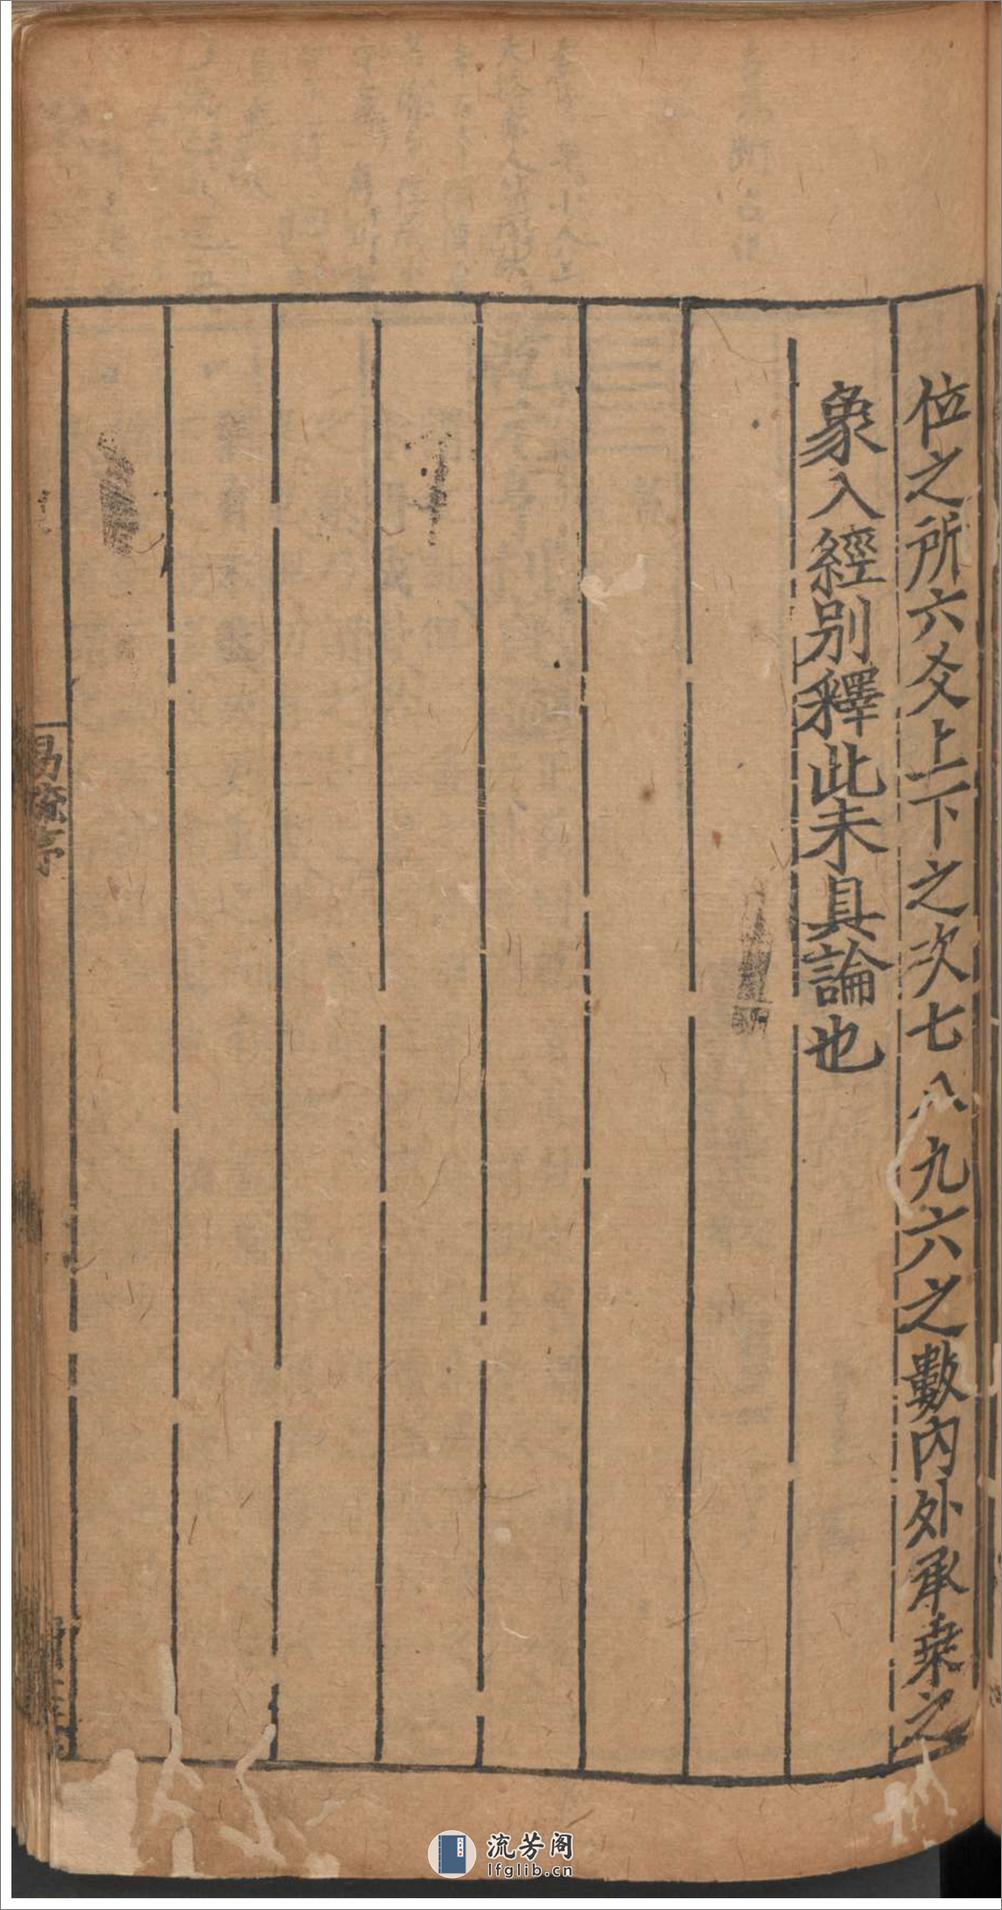 位之所六爻上下之次七八九六之數內外承乗之
象入經別釋此未具論也
流芳阁
lfglib.cn